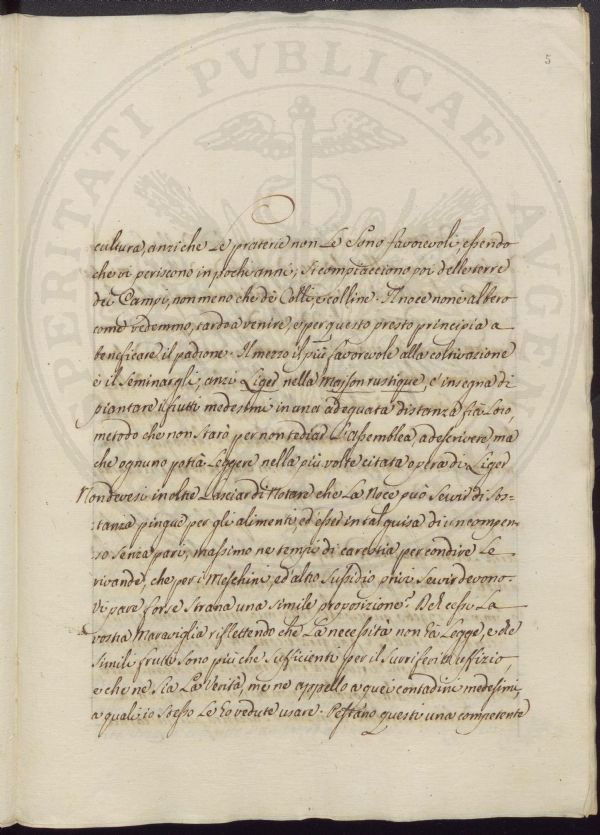 5
PROSPERITATI PVBLICAE AVGENDAE
cultura, anziche Le praterie non Le sono favorevoli, essendo
che vi periscono in pochi anni, si compiacciono poi delle terre
dei Campi, non meno che de Colli, e colline. Il noce non è albero
come vedemmo, tardo a venire, e per questo presto principia a
beneficare il padrone. Il mezzo il più favorevole alla coltivazione
è il Seminargli, anzi Liger nella Maison rustique, c'insegna di
piantare i frutti medesimi in una adeguata distanza fra Loro,
metodo che non starò per non tediar L'assemblea a descrivere mà
che ognuno potrà Leggere nella più volte citata opera di Liger
Non devesi inoltre Lasciar di Notare che La Noce può Servir di sos=
=tanza pingue per gli alimenti, ed esser in tal guisa di un compen=
so senza pari, massimo ne tempi di carestia per condire Le
vivande, che per i Meschini, ed altro Sussidio privi servir devono.
Vi pare forse strana una simile proposizione? Del cessi La
vostra Maraviglia riflettendo che La necessità non hà Legge, e che
simili frutti sono più che sufficienti per il surriferito uffizio,
e che ne sia La Verità, me ne appello a quei contadini medesimi,
a quali io stesso Le hò vedute usare. Pestano questi una competente